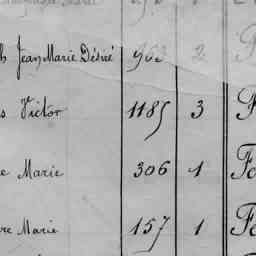 h Jean Marie Désiré 963 2 F
s Victor 1185 3 F
e Marie 306 1 Fe
re Marie 157 1 Fe